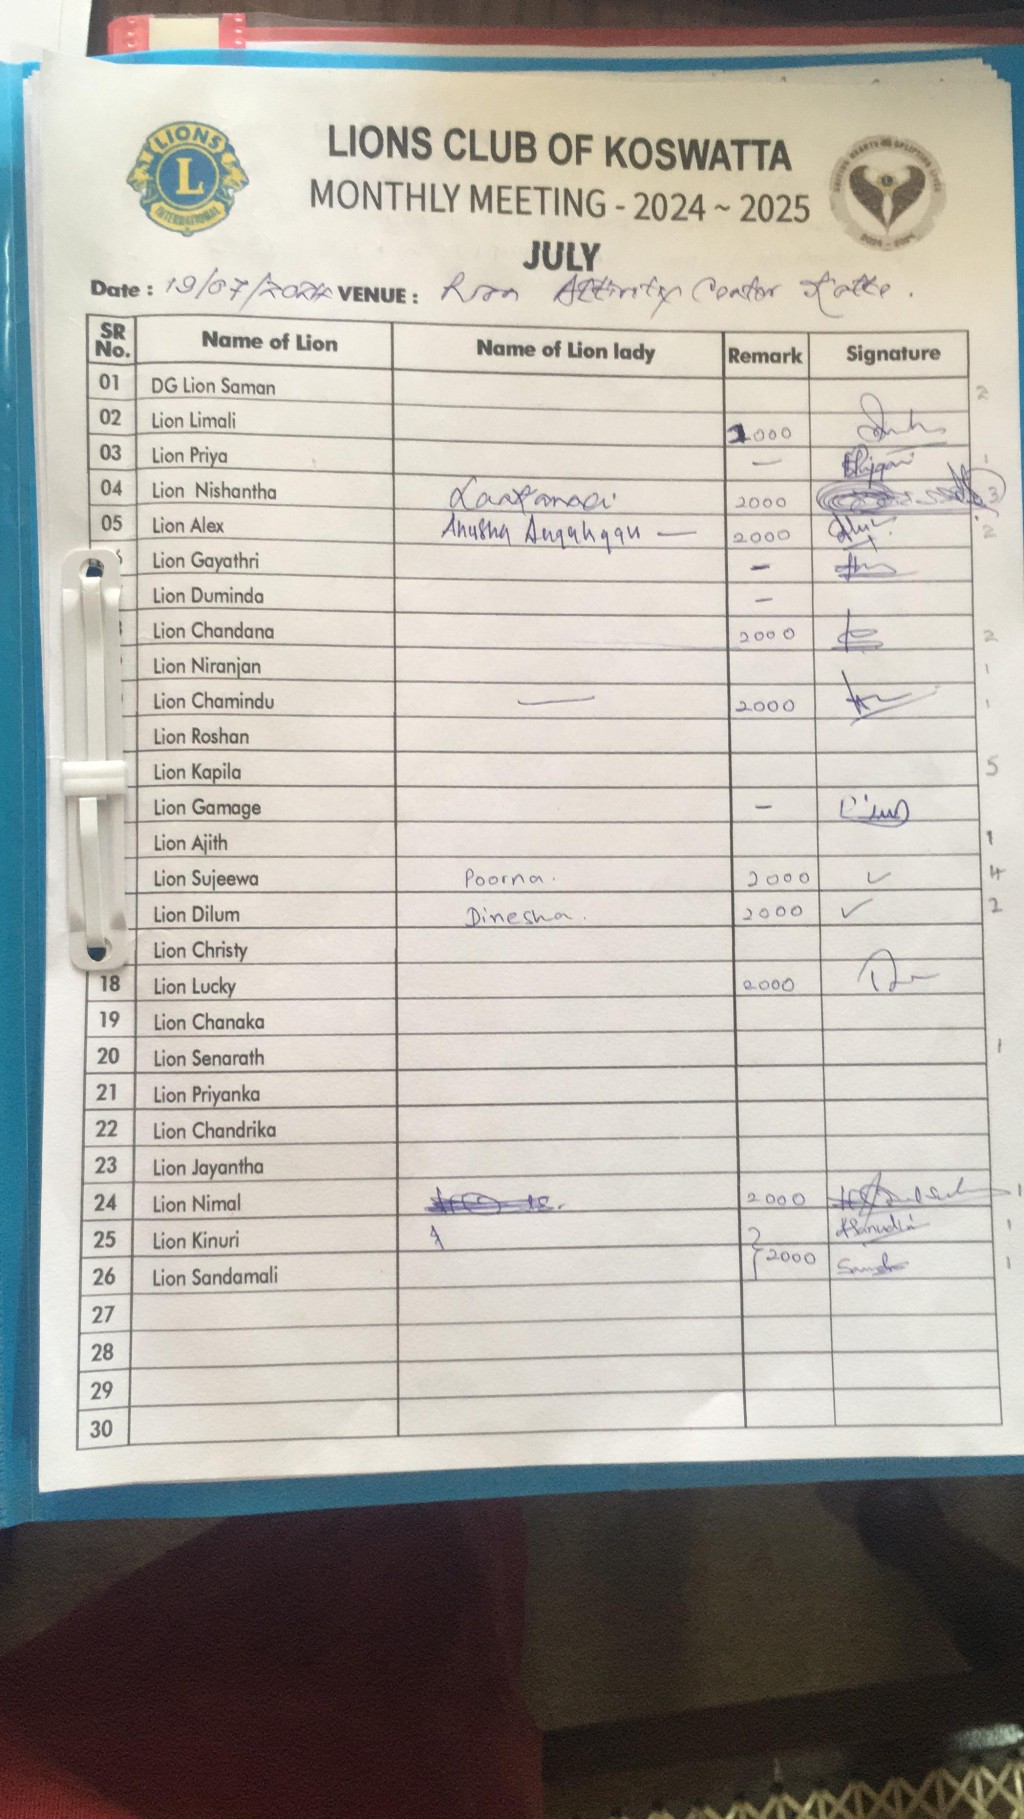 LIONS
L
INTERNATIONAL
LIONS CLUB OF KOSWATTA
MONTHLY MEETING - 2024 ~ 2025
JULY
Date : 19/07/2024 VENUE : Activity Center
SR No. Name of Lion Name of Lion lady Remark Signature
01 DG Lion Saman 2
02 Lion Limali 2000
03 Lion Priya — 1
04 Lion Nishantha 2000 3
05 Lion Alex Anusha — 2000 2
Lion Gayathri –
Lion Duminda –
Lion Chandana 2000 2
Lion Niranjan 1
Lion Chamindu — 2000 1
Lion Roshan
Lion Kapila 5
Lion Gamage –
Lion Ajith 1
Lion Sujeewa Poorna. 2000 ✓ 4
Lion Dilum Dinesha. 2000 ✓ 2
Lion Christy
18 Lion Lucky 2000
19 Lion Chanaka
20 Lion Senarath 1
21 Lion Priyanka
22 Lion Chandrika
23 Lion Jayantha
24 Lion Nimal 2000 1
25 Lion Kinuri 1
26 Lion Sandamali 2000 1
27
28
29
30